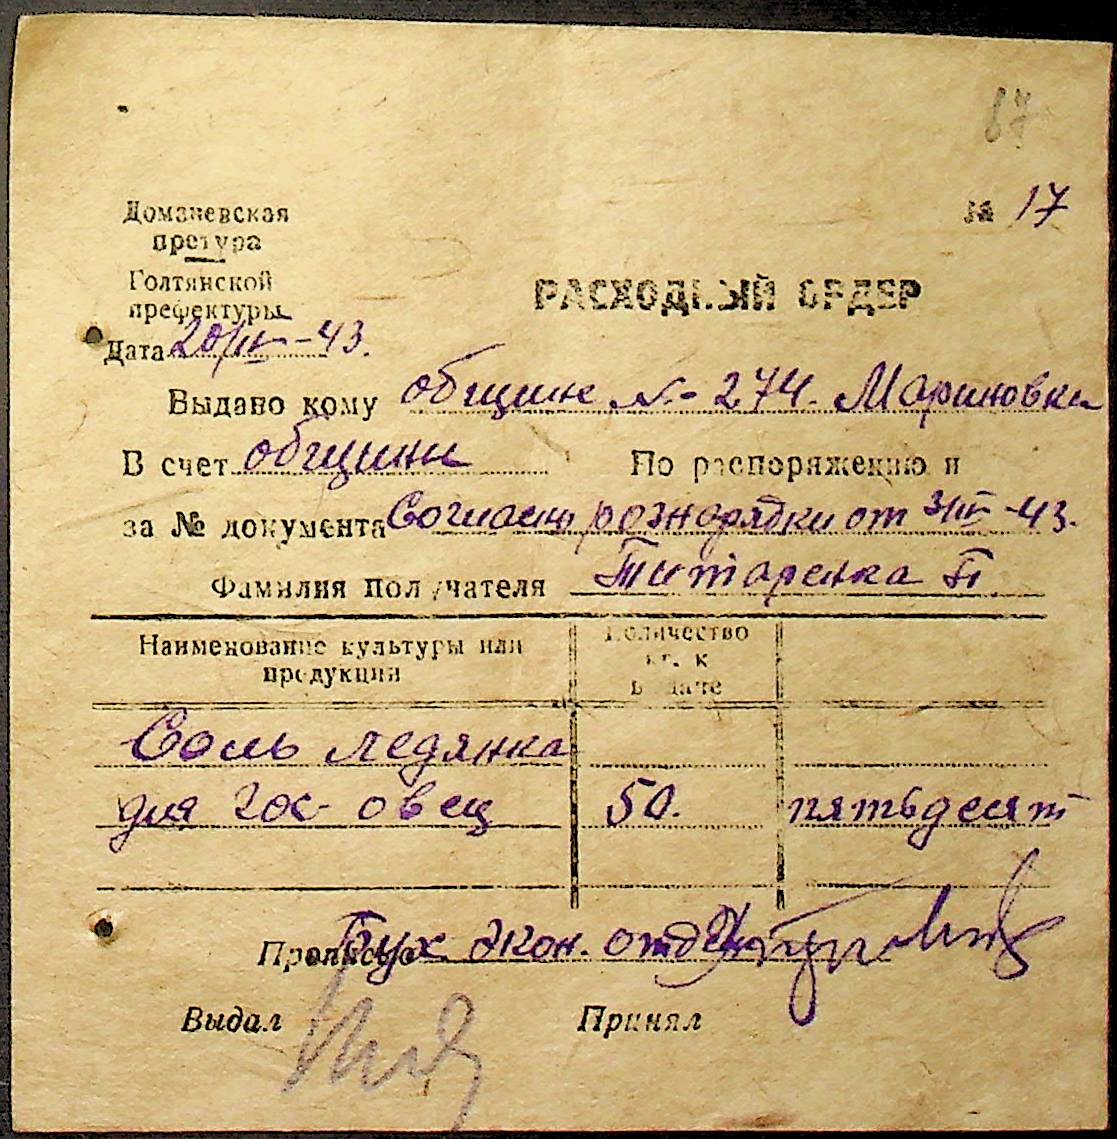 87
Доманевская
претура
Голтянской
префектуры
№ 17
РАСХОДНЫЙ ОРДЕР
Дата 20/IV-43.
Выдано кому общине №-274. Мариновка
В счет общины По распоряжению и
за № документа Согласно рознорядки от 3/IV-43.
Фамилия получателя Титаренка П
Наименование культуры или продукции
Количество кг. к выдаче
Соль ледянка
для гос- овец 50. пятьдесят
Прописью Бух. экон. отдел
Выдал Принял